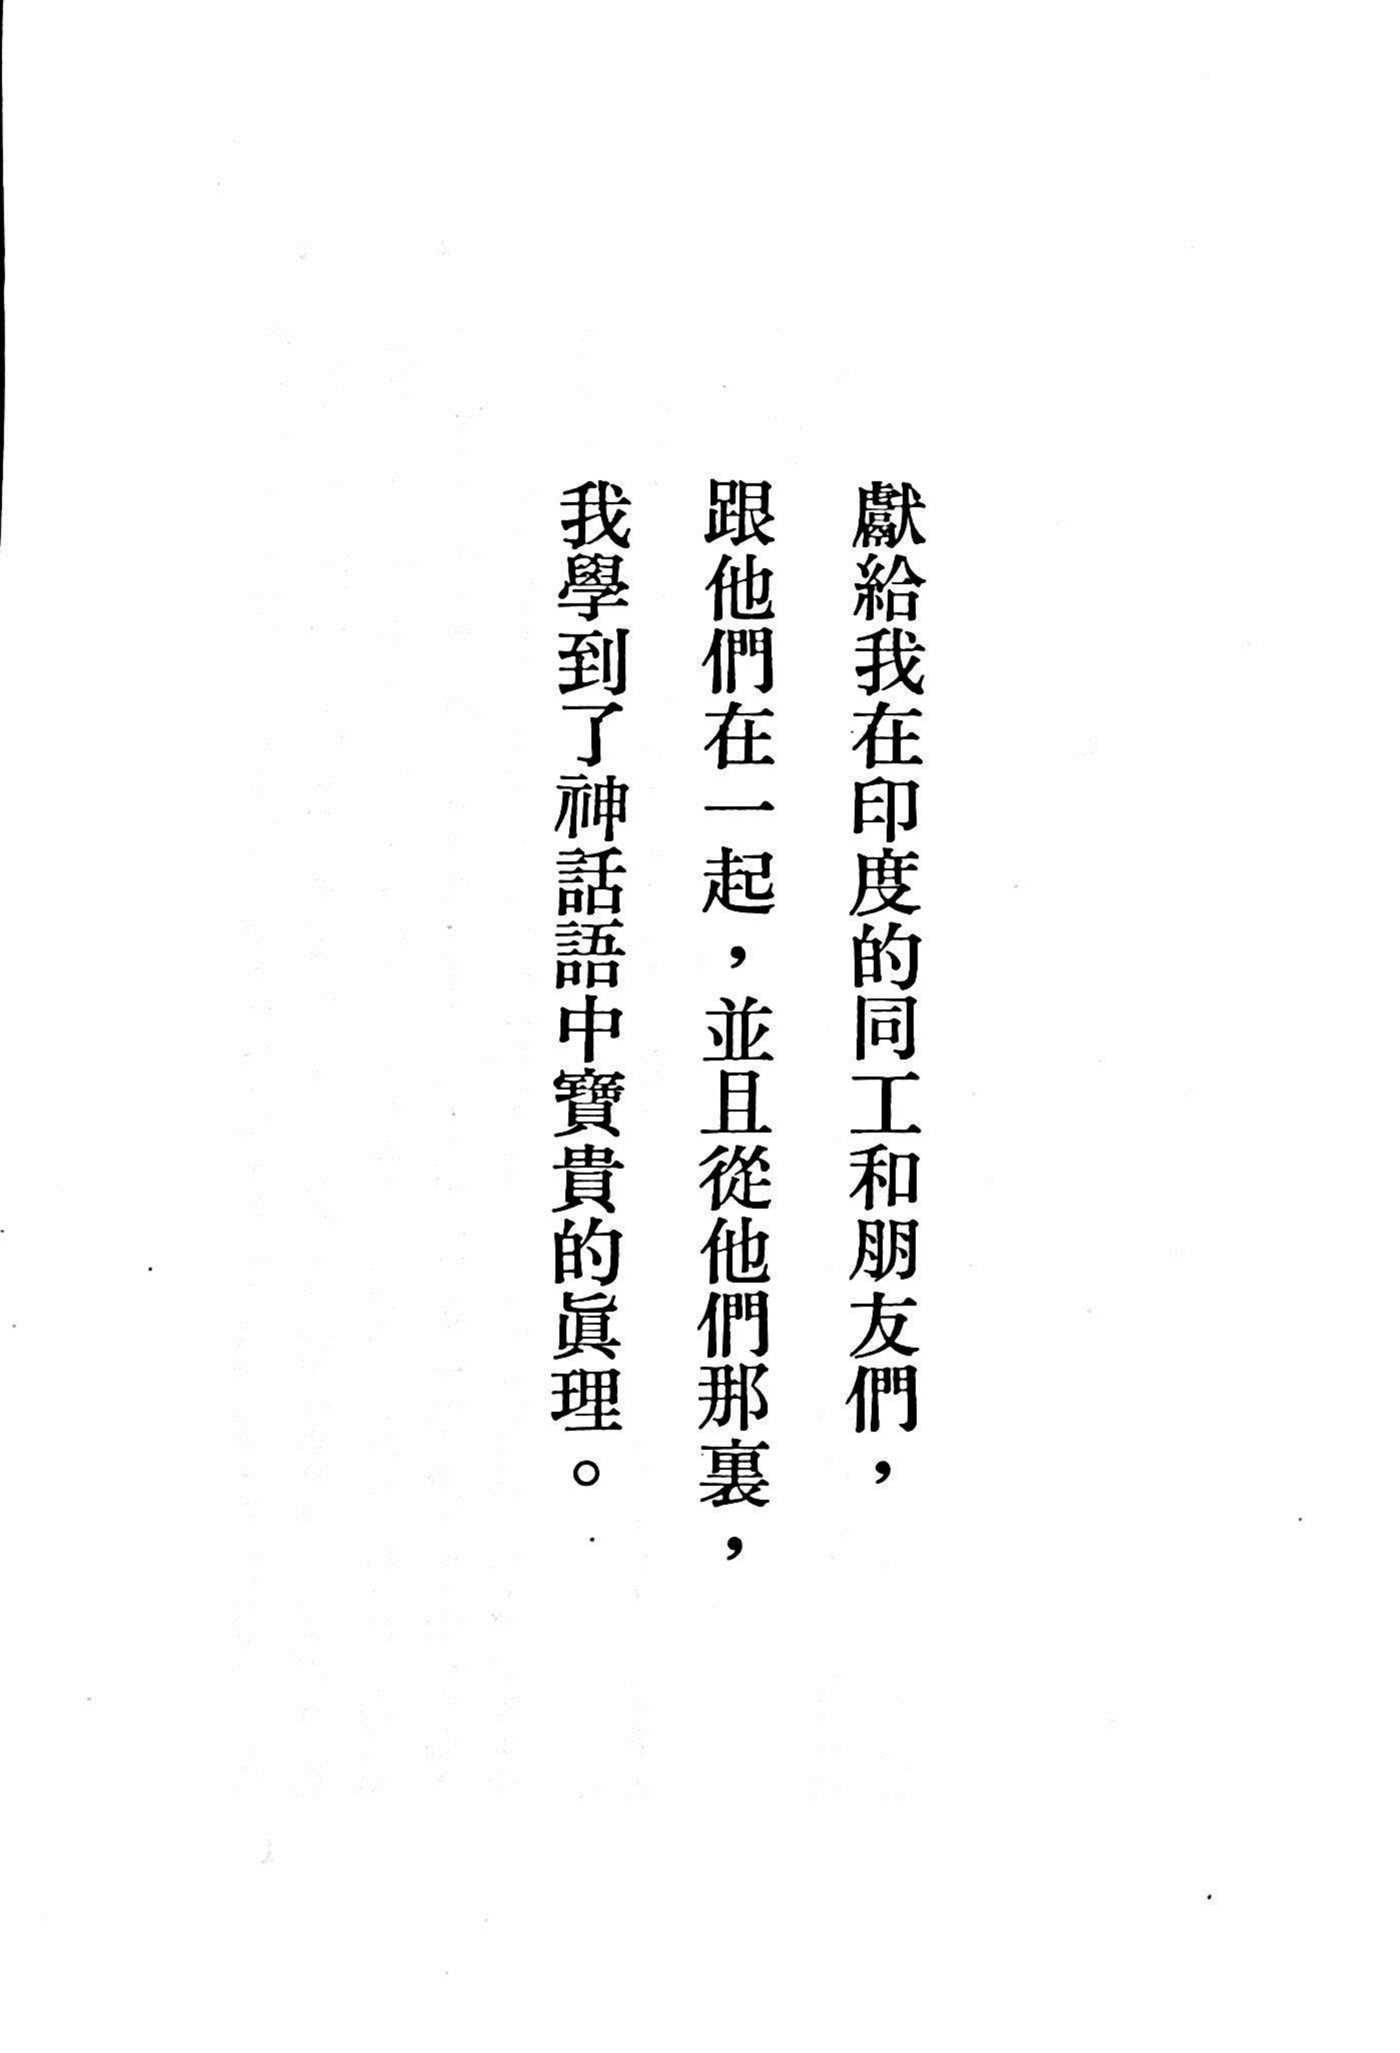 獻給我在印度的同工和朋友們，
跟他們在一起，並且從他們那裏，
我學到了神話語中寶貴的眞理。